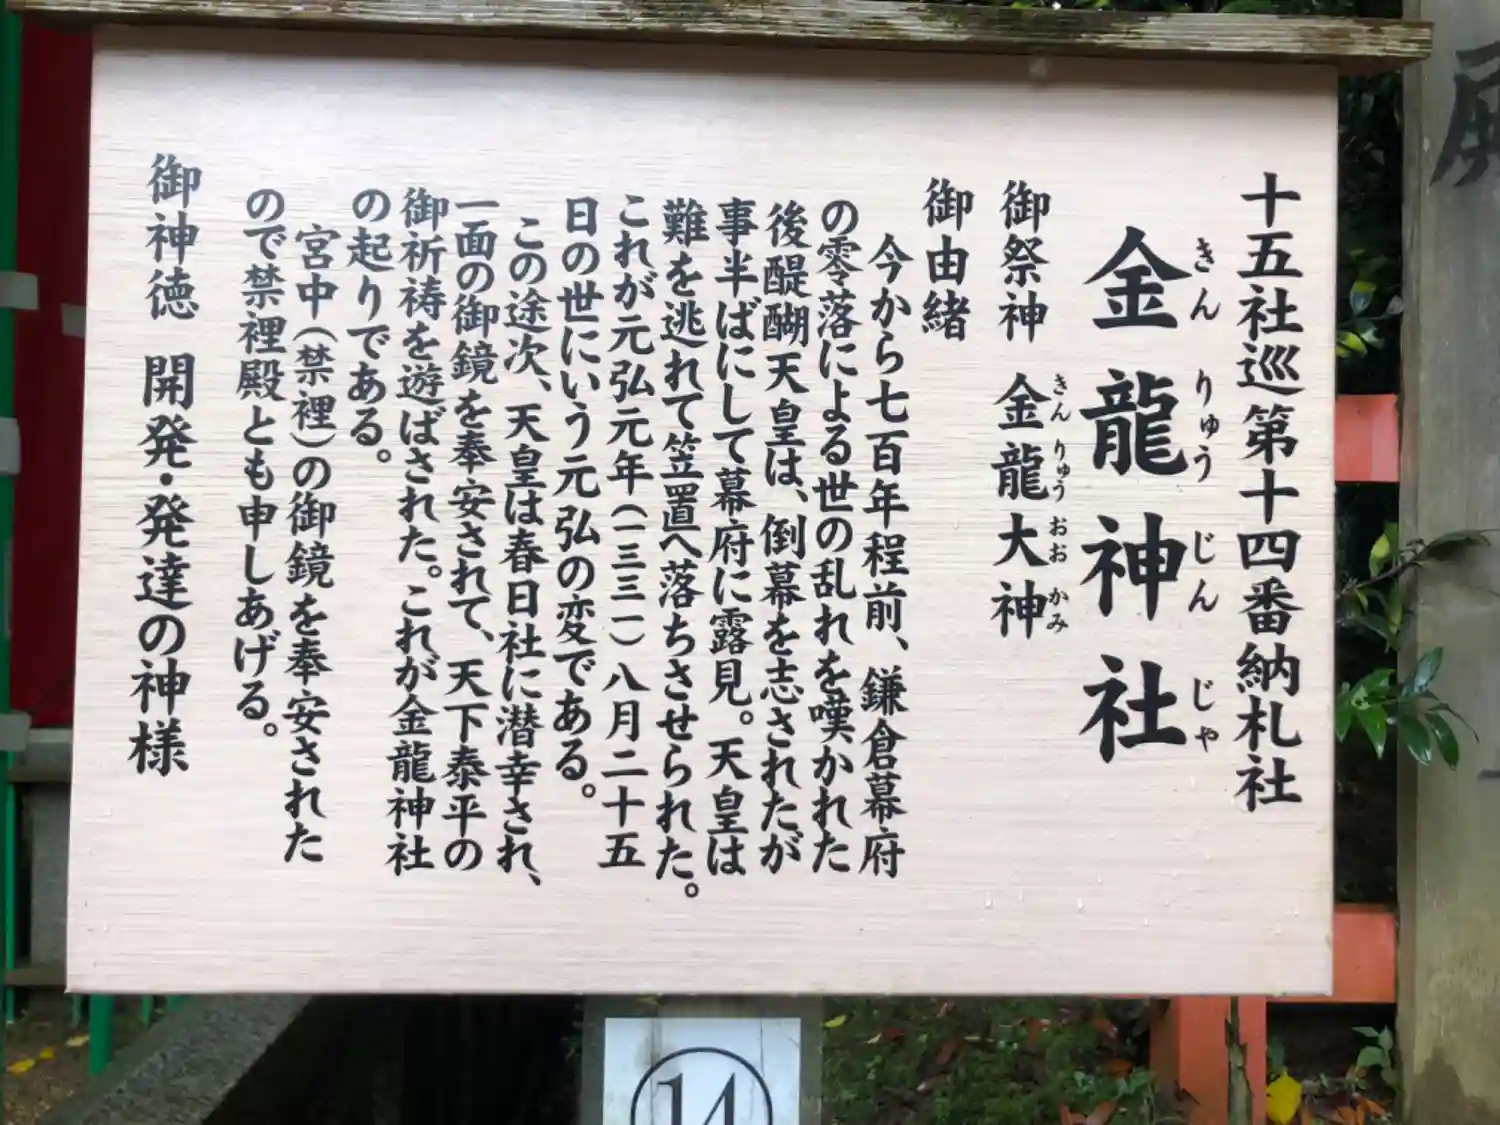 十五社巡第十四番納札社
金龍神社
きんりゅうじんじゃ
御祭神 金龍大神
きんりゅうおおかみ
御由緒
今から七百年程前、鎌倉幕府
の零落による世の乱れを嘆かれた
後醍醐天皇は、倒幕を志されたが
事半ばにして幕府に露見。天皇は
難を逃れて笠置へ落ちさせられた。
これが元弘元年(一三三一)八月二十五
日の世にいう元弘の変である。
この途次、天皇は春日社に潜幸され、
一面の御鏡を奉安されて、天下泰平の
御祈祷を遊ばされた。これが金龍神社
の起りである。
宮中(禁裡)の御鏡を奉安された
ので禁裡殿とも申しあげる。
御神徳 開発・発達の神様
14
殿